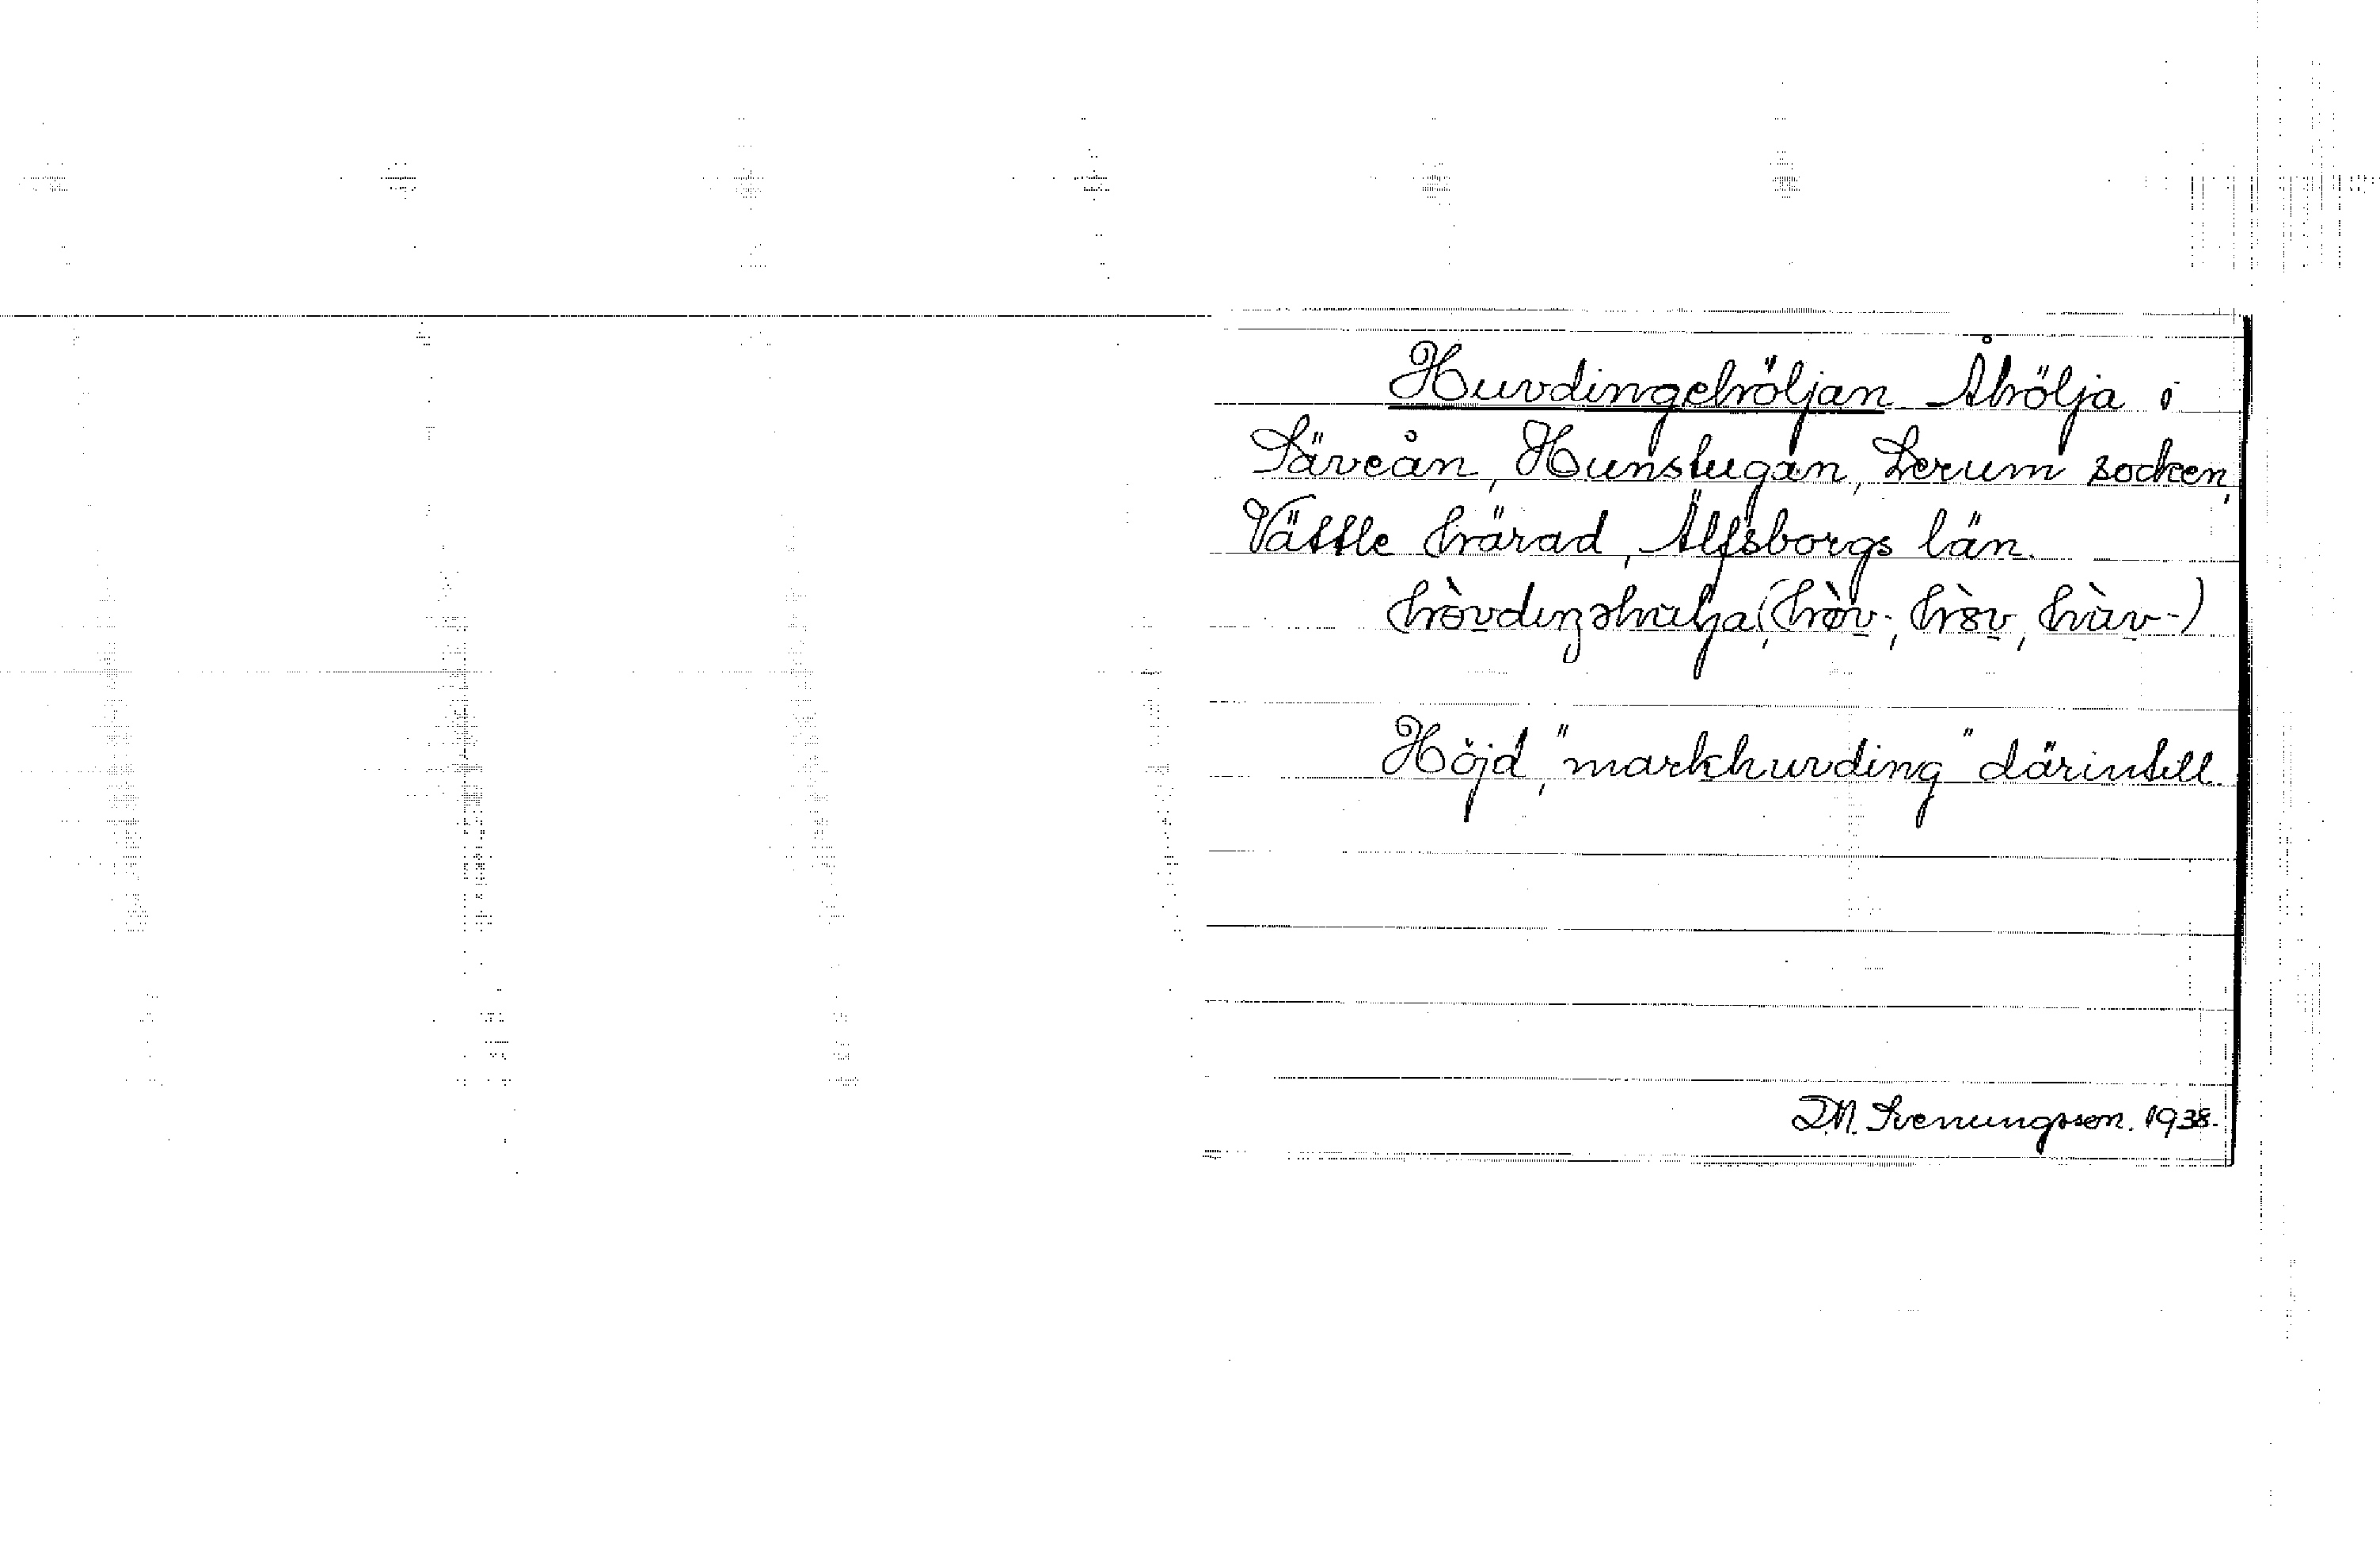 Huvdingehöljan Åhölja i
Säveån, Hunstugan, Lerum socken,
Vättle härad, Älfsborgs län.
Höjd, "markhuvding" därintill.
D.N. Svenungsson. 1938.